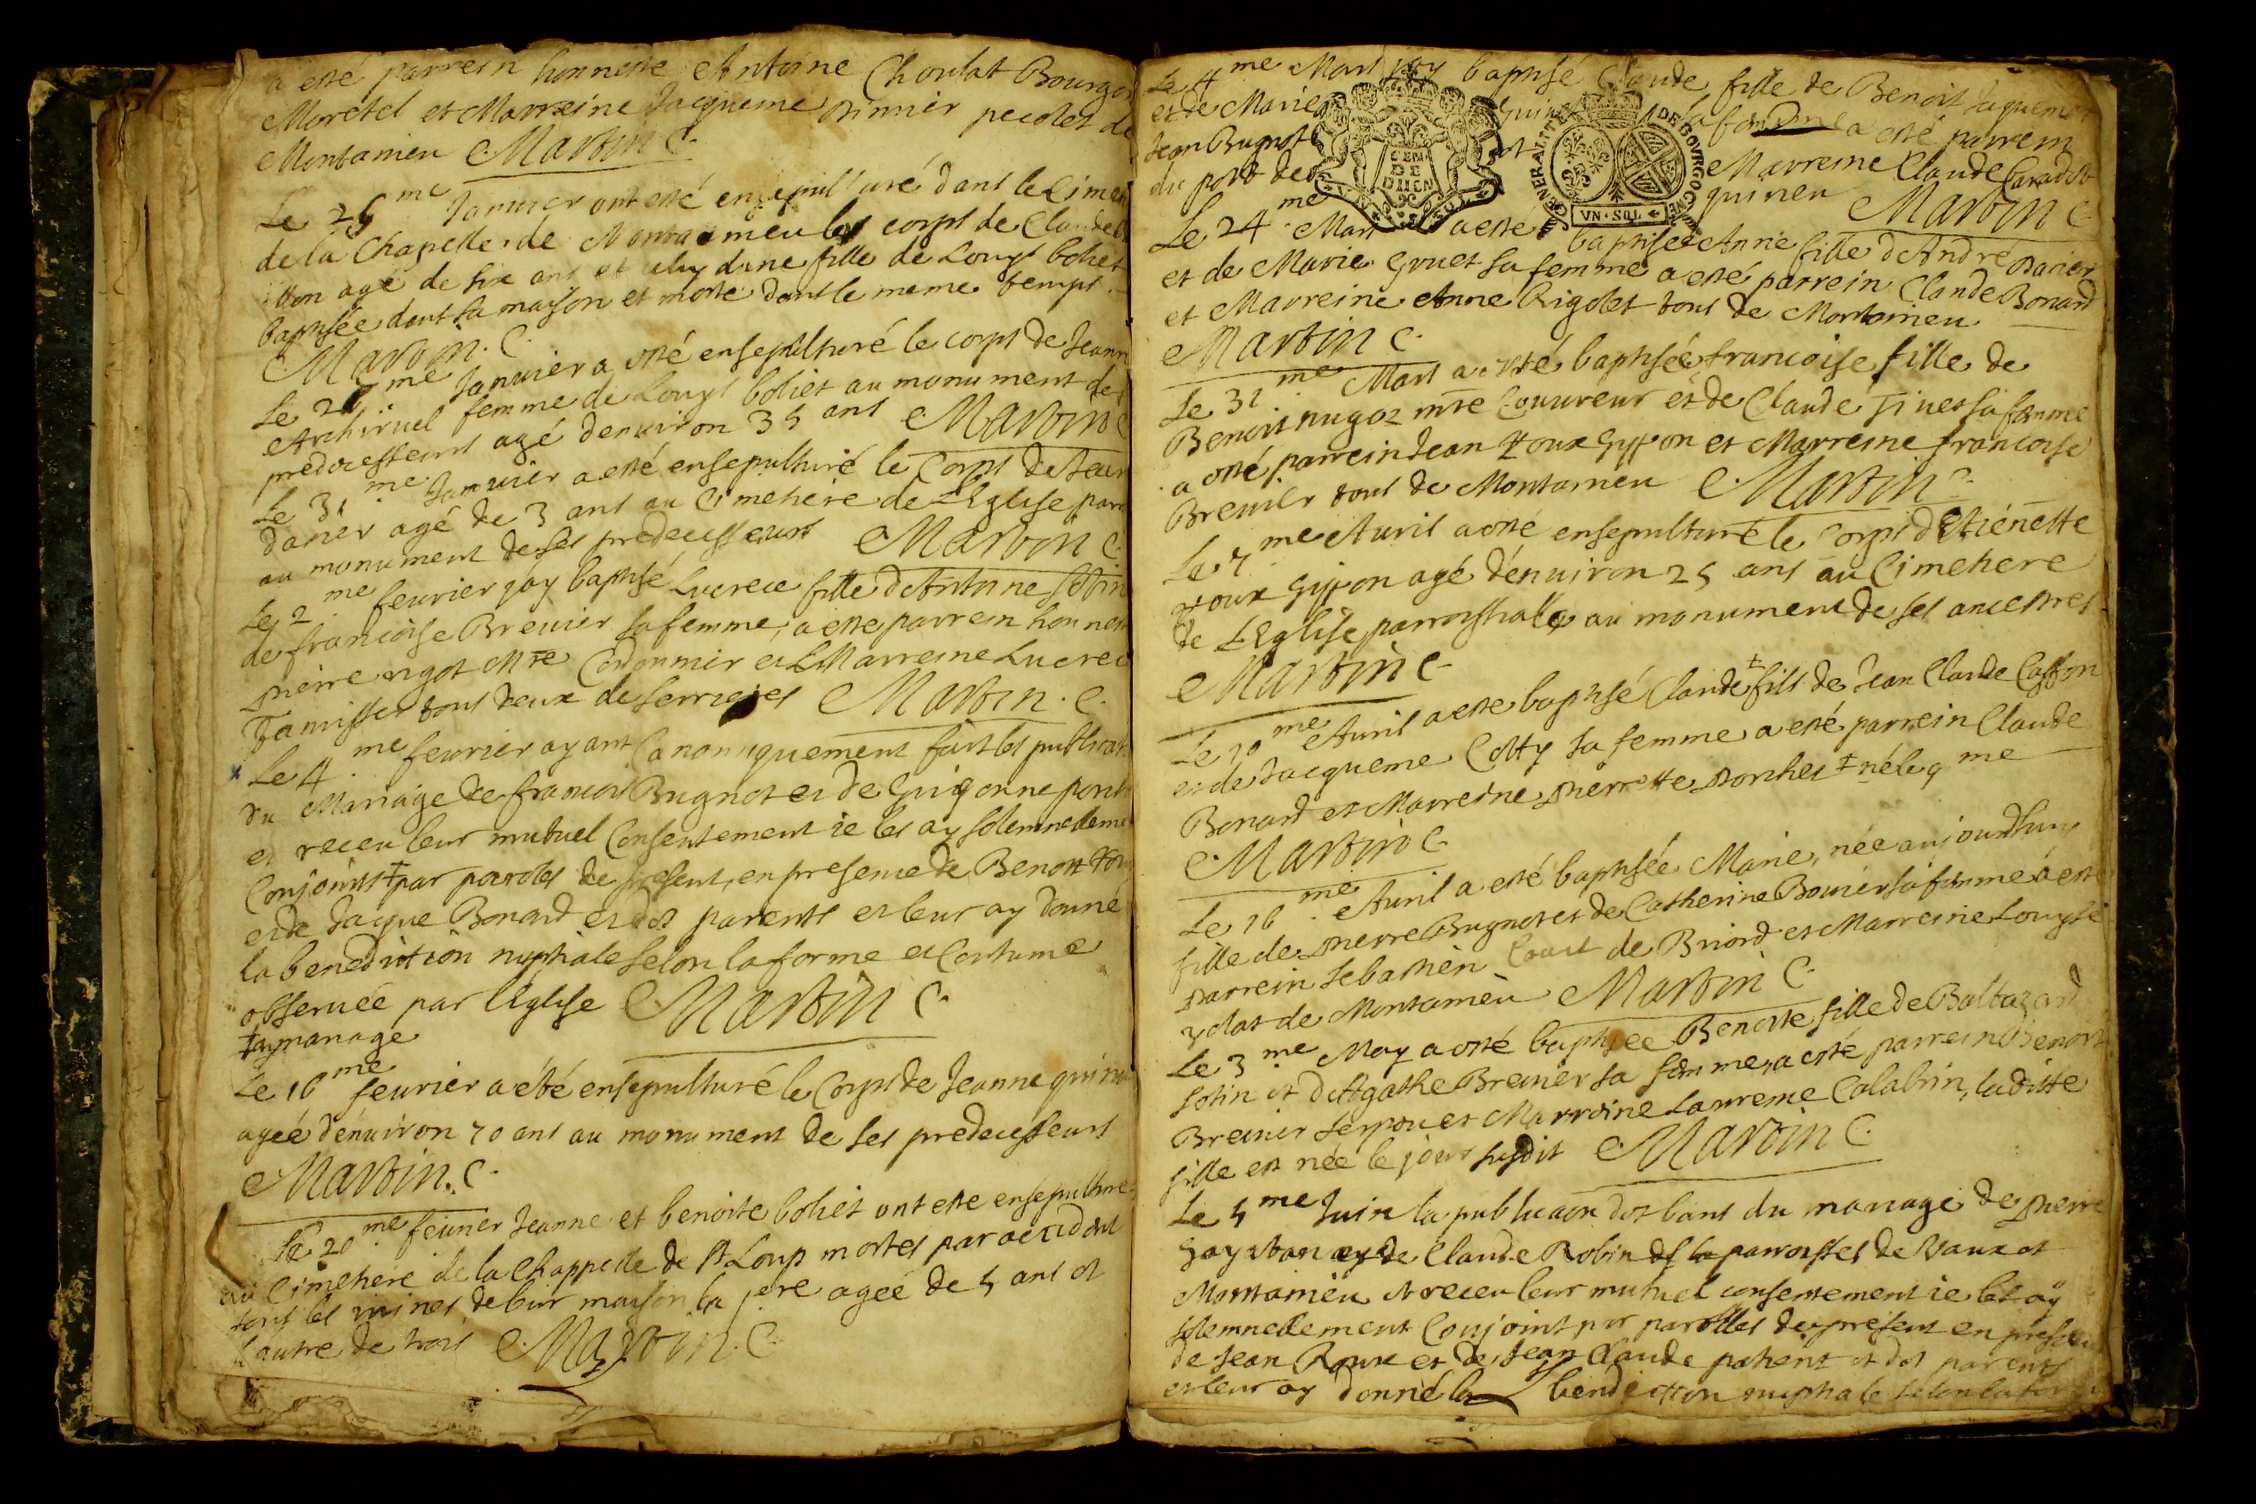 a esté parrein honneste Antoine Choulat Bourgeo
Moretel et Marreine Jacqueme Pinnier pecolet de
Montanieu Martin C.
Le 26 me Janvier ont esté ensepulturé dans le Cimet
de la Chapelle de Montanieu les corps de Claude
agé de six ans et celuy dune fille de Louys boliet
Baptisée dant sa maison et morte dans le meme temps
Martin. C.
Le me Janvier a esté ensepulturé le corps de Jeann
femme de Louys boliet au monument de
predecesseurs agé denviron 35 ans Martin C
Le 31 me Janvier a esté ensepulturé le Corps de Jean
danier agé de 3 ans au Cimetiere de L'Eglise paro
au monument de ses predecesseurs Martin C.
Le 2 me feurier jay baptisé Lucrece fille dAntoine Sotin
de francoise Breuier sa femme, a esté parrein honnes
pierre rigot Mre Cordonnier et Marreine Lucrece
Tamisser tous deux de Serrieres Martin. C.
Le 4 me feurier ayant Canoniquement fait les publicat
du Mariage de francois Bugnot et de Guigonne pont
et receu leur mutuel Consentement ie les ay solemnelleme
Conjoints + par paroles de present, en presence de Benoit
et de Jacque Bonard et des parents et leur ay donné
la benediction nuptiale selon la forme et Coutume
observée par l'Eglise Martin C.
+ en mariage
Le 16 me feurier a été ensepulturé le Corps de Jeanne
agée d'environ 70 ans au monument de ses predecesseurs
Martin. C.
Le 20 me feurier Jeanne et benoite boliet ont esté ensepulture
au Cimetiere de la Chappelle de St Loup mortes par accident
sous les ruines de leur maison la 1ere agée de 5 ans et
l'autre de trois Martin. C.
Le 4 me Mars jay baptisé Claude fille de Benoit Jaquemet
et de Marie sa femme a esté parrein
Jean Bugnot Marreine Claude
du port de quirieu Martin C.
GENERALITE DE BOURGOGNE
UN · SOL
Le 24 me Mars a esté baptisée Anne fille d'André Danier
et de Marie Gruet sa femme a esté parrein Claude Bonard
et Marreine Anne Rigolet tous de Montanieu
Martin C.
Le 31 me Mars a esté baptisée francoise fille de
Benoit nugoz mre Couvreur et de Claude sa femme
a esté parrein Jean Roux Gyppon et Marreine francoise
Breuier tous de Montanieu Martin C.
Le 7 me Auril a esté ensepulturé le Corps d'Etienette
Roux Gippon agé d'environ 25 ans au Cimetiere
de L'Eglise parroissialle au monument de ses ancestres
Martin C.
Le 10 me Auril a esté baptisé Claude + fils de Jean Claude Casson
et de Jacqueme Cotty sa femme a esté parrein Claude
Bonard et Marreine pierrette porchet + né le 9 me
Martin C.
Le 16 me Auril a esté baptisée Marie, née aujourdhuy
fille de pierre Bugnot et de Catherine Bouier sa femme a esté
parrein Sebastien de Briord et Marreine Louyse
de Montanieu Martin C.
Le 3 me May a esté baptisée Benoite fille de Baltazard
Sotin et d'Agathe Breuier sa femme, a esté parrein Benoit
Breuier et Marreine Laureme Calabrin, laditte
fille est née le jour susdit Martin C.
Le 5 me Juin la publicaon des bans du mariage de pierre
et de Claude Robin parroisses de Vaux et
Montanieu et receu leur mutuel consentement ie les ay
solemnellement Conjoint par parolles de present en presence
de Jean Roux et de Jean Claude et des parents
et leur ay donné la benediction nuptiale selon la forme